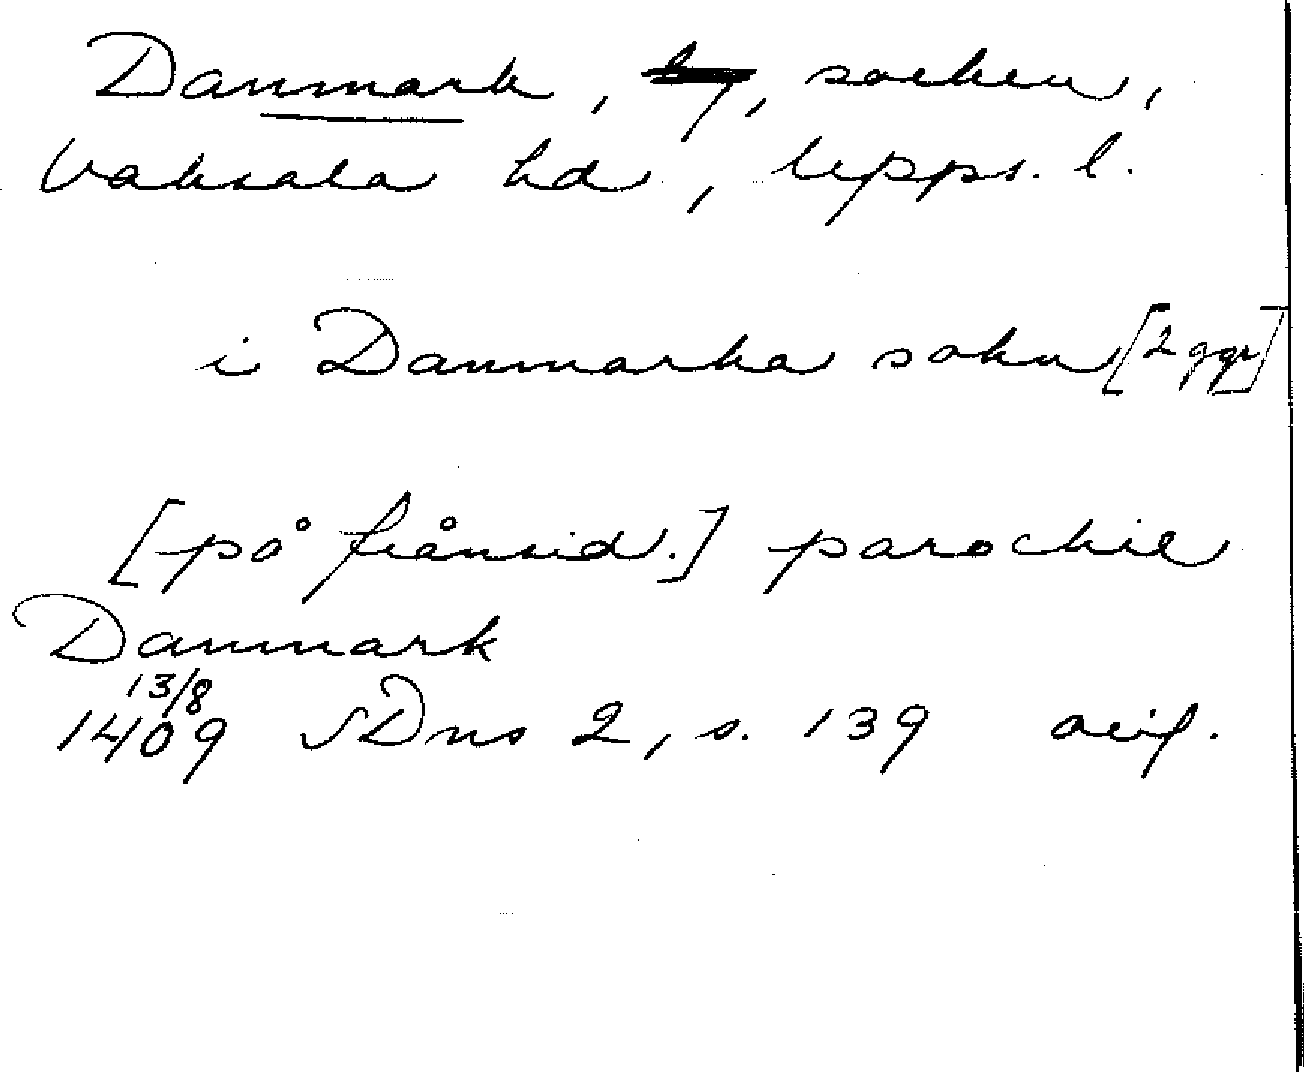 Danmark, socken,
Vaksala hd, Upps. l.
i Danmarka sokn [2 ggr]
[på frånsid.] parochie
Danmark
13/8
1409 SDns 2, s. 139 avif.